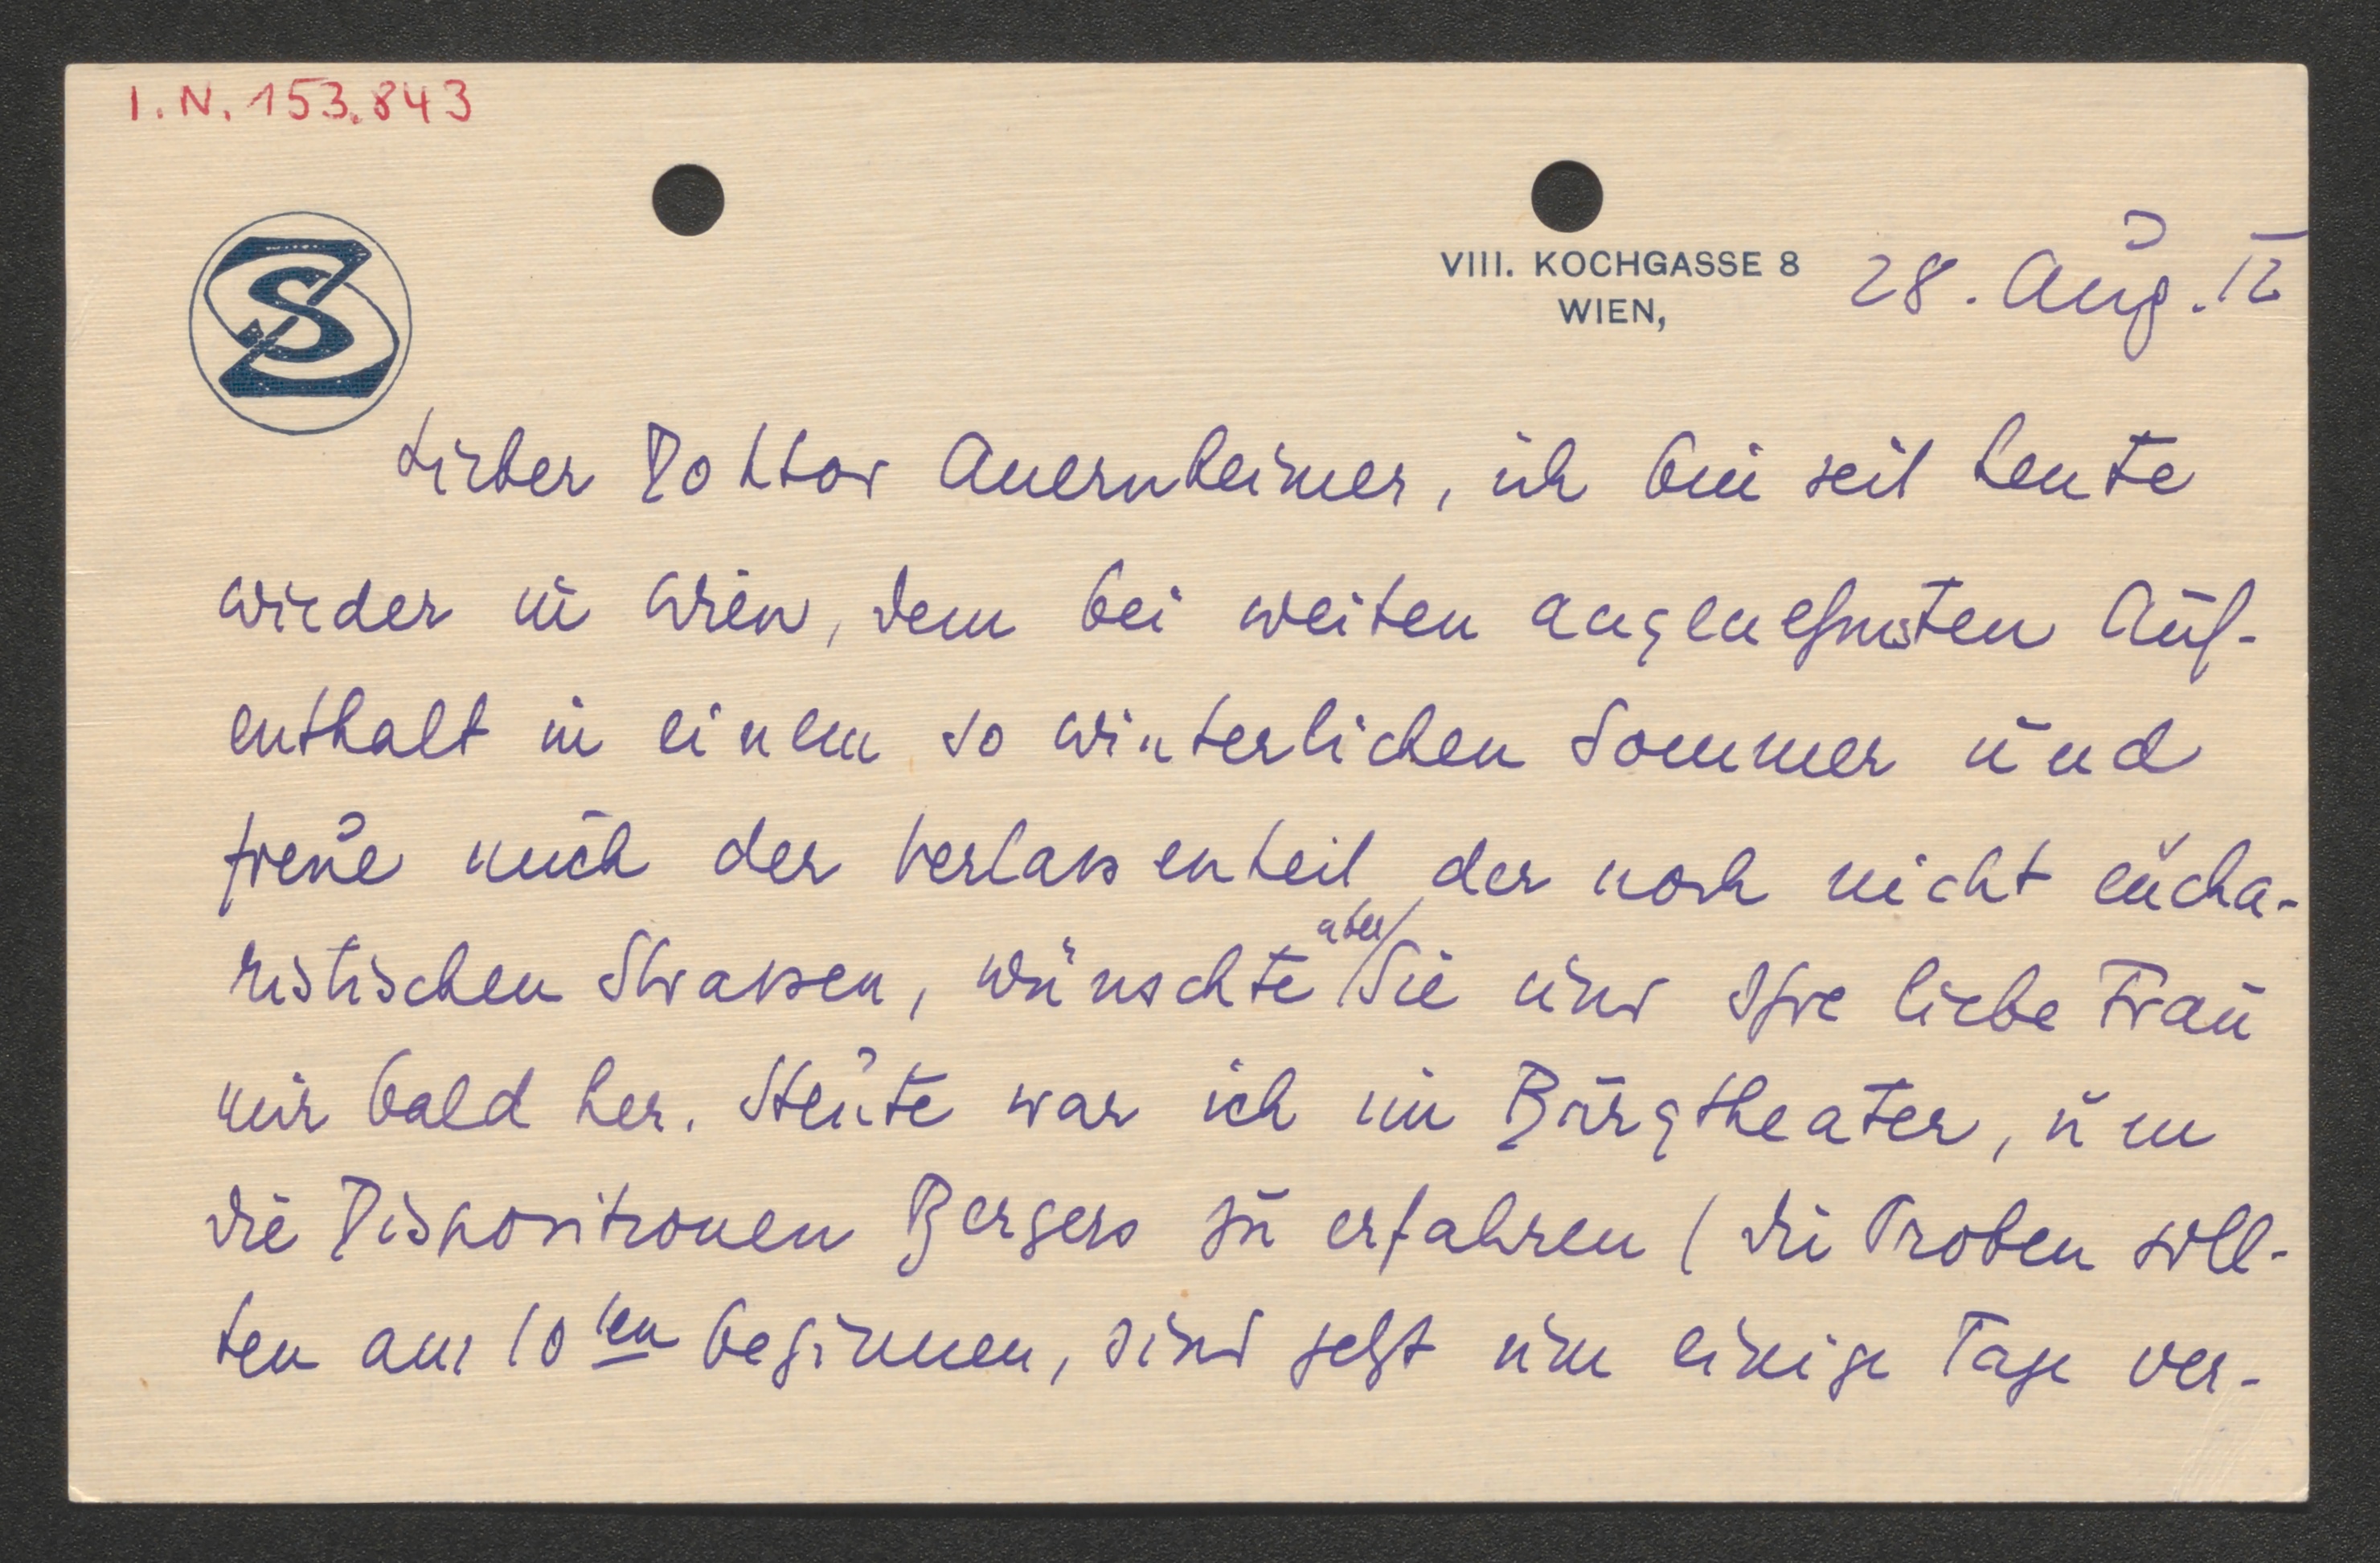 I.N. 153.843
SZ
VIII. KOCHGASSE 8
WIEN,
28. Aug. 12
Lieber Doktor Auernheimer, ich bin seit heute
wieder in Wien, dem bei weiten angenehmsten Auf-
enthalt in einem so winterlichen Sommer und
freue mich der Verlassenheit der noch nicht eucha-
ristischen Strassen, wünschte aber Sie und Ihre liebe Frau
mir bald her. Heute war ich im Burgtheater, um
die Dispositionen Bergers zu erfahren (die Proben soll-
ten am 10ten beginnen, sind jetzt um einige Tage ver-